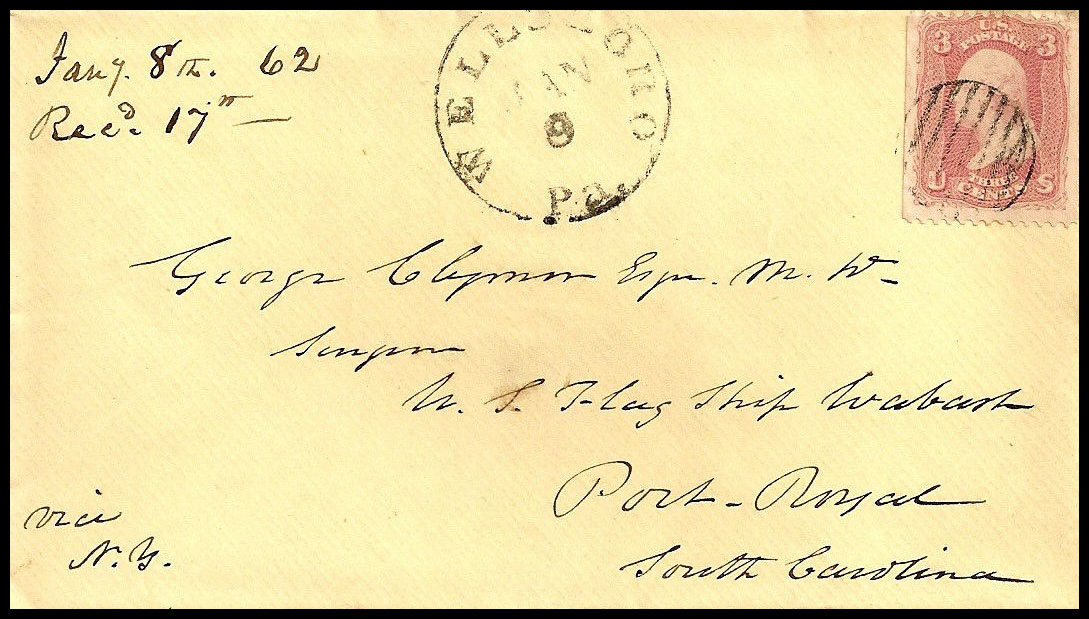 Jany. 8th. 62
Recd. 17th
WELLSBORO
JAN
8
Pa.
U.S.
POSTAGE
3 3
THREE
CENTS
U S
George Clymer Esqr. M. D
Surgeon
U. S. Flag Ship Wabash
Port-Royal
South Carolina
via
N.Y.